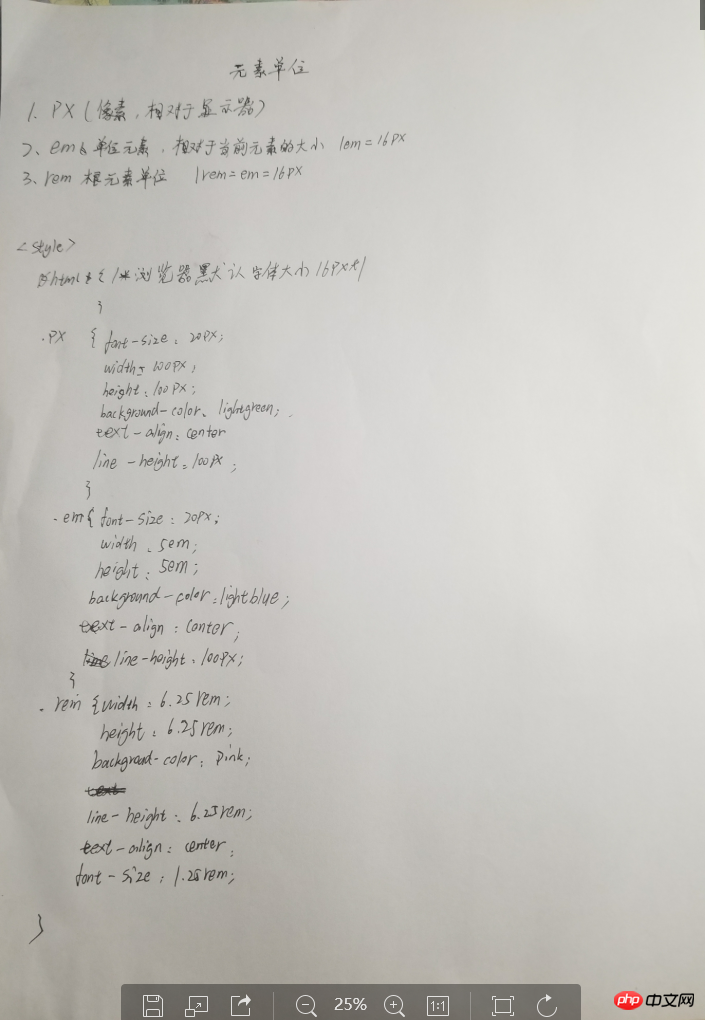 元素单位
1. PX (像素, 相对于显示器)
2、em 单位元素, 相对于当前元素的大小 1em=16PX
3、rem 根元素单位 1rem=em=16PX
<style>
html { /* 浏览器默认字体大小16PX*/
}
.PX { font-size: 20PX;
width: 100PX;
height: 100PX;
background-color: lightgreen;
text-align: center
line-height: 100PX;
}
.em{ font-size: 20PX;
width: 5em;
height: 5em;
background-color: lightblue;
text-align: center;
line-height: 100PX;
}
.rem {width: 6.25rem;
height: 6.25rem;
backgroad-color: Pink;
line-height: 6.25rem;
text-align: center;
font-size: 1.25rem;
}
25%
1:1
php 中文网